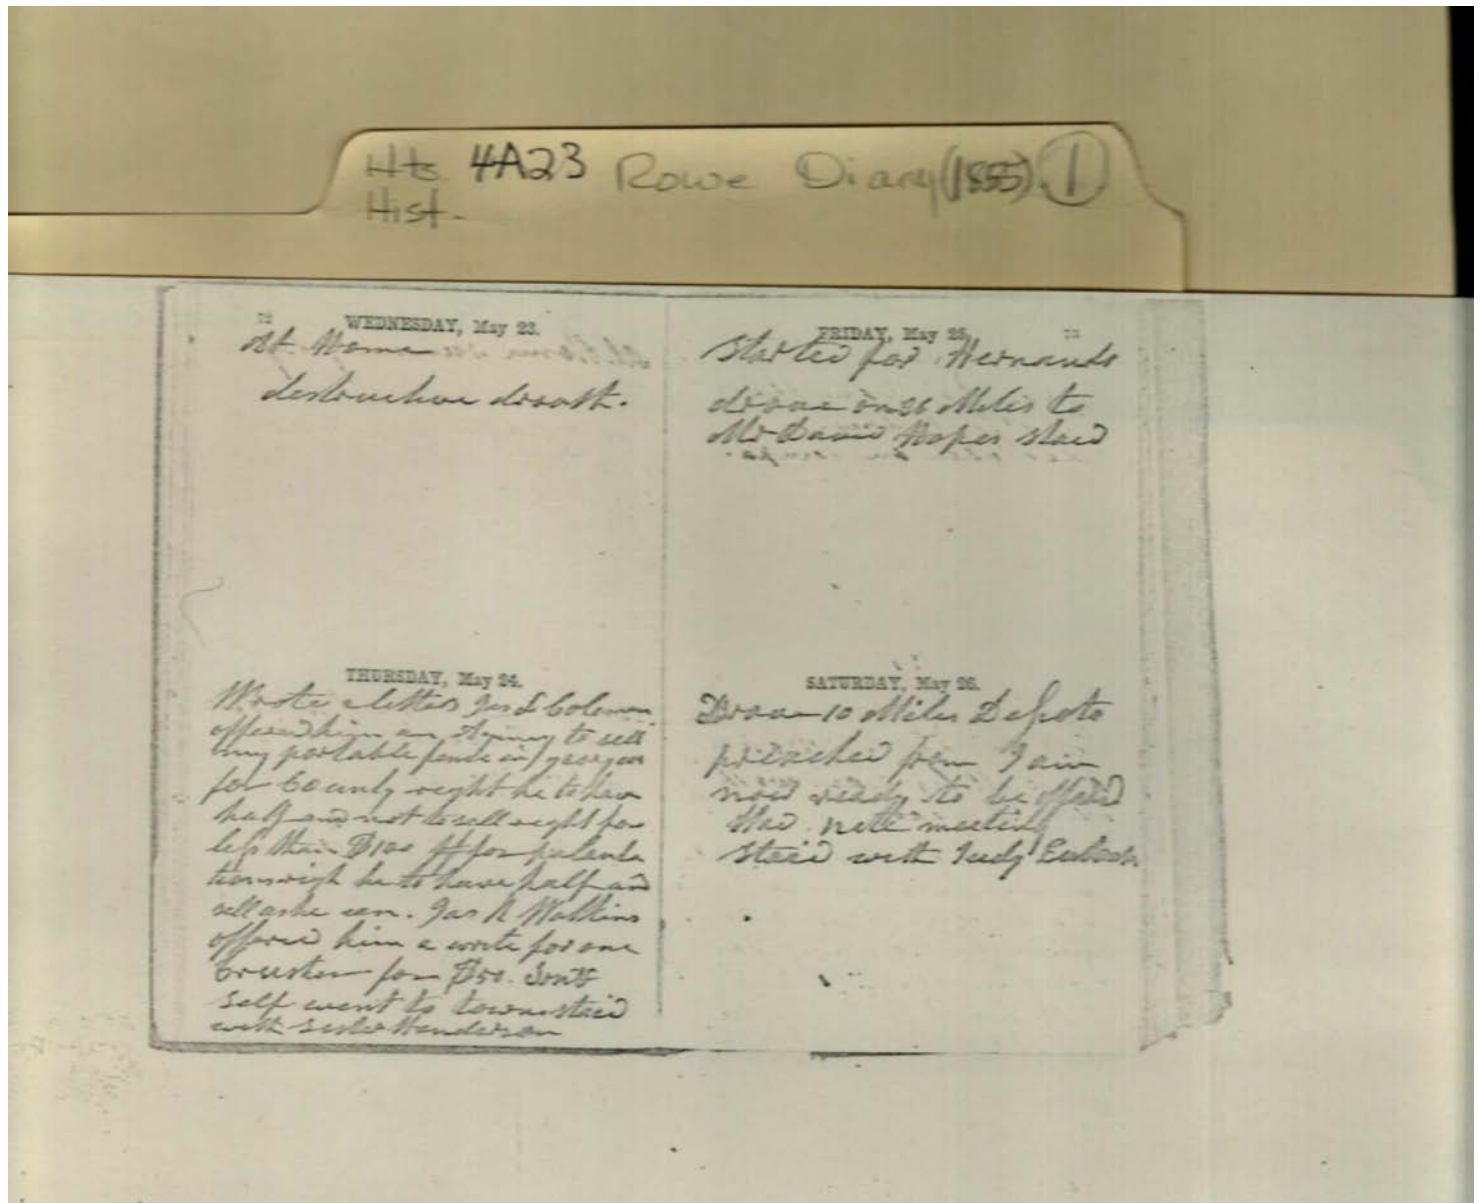 Hts 4A23 Rowe Diary (1855) 1
Hist.
72
WEDNESDAY, May 23.
At Home
destructive drouth.
THURSDAY, May 24.
Wrote a letter Jas L Coleman
offered him an Agency to sell
my portable fence in
for County right he to have
half and not to sell right for
less than $100
he to have half and
sell as he can. Jas R Watkins
offered him a write for one
for $50.
self went to town staid
with sister Henderson
FRIDAY, May 25.
73
Started for Hernando
drove on 26 Miles to
Mr David staid
SATURDAY, May 26.
Drove 10 Miles Desoto
preached from I am
now ready to be offered
Had meeting
staid with Judy